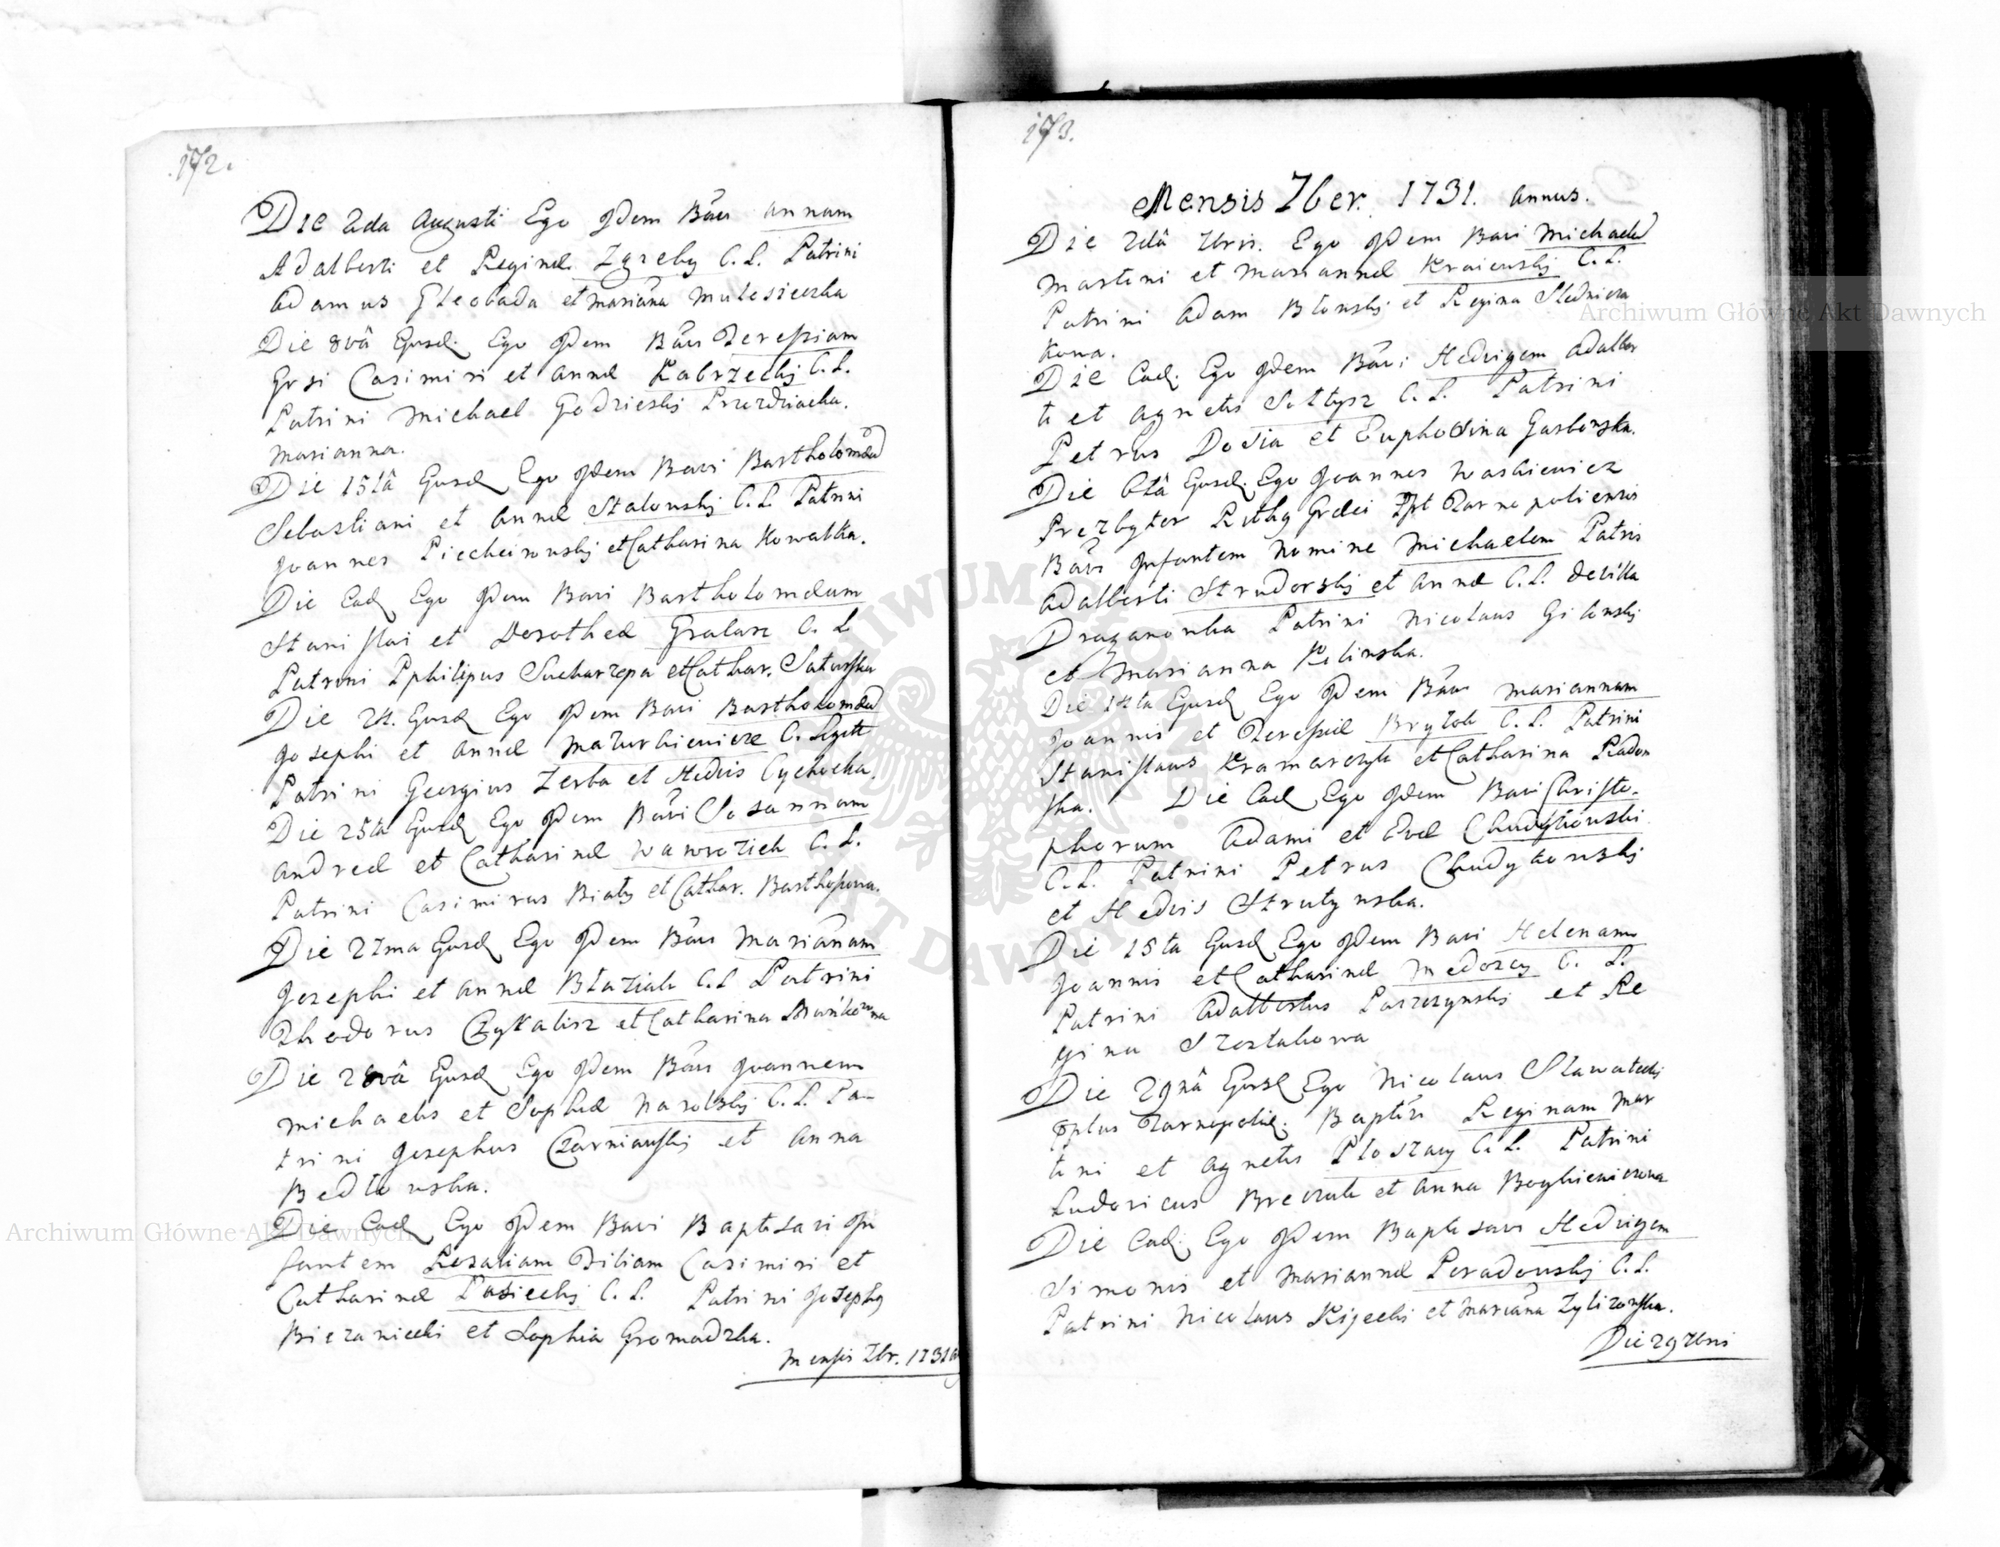 172.
Die 2da Augusti Ego Idem Bavi Annam
Adalberti et Reginæ Zgreby C. L. Patrini
Adamus et Mariana
Die 8vâ Ejusd. Ego Idem Bavi Teressiam
Grsi Casimiri et Annæ Kobrzechj C. L.
Patrini Michael Godzieskj
Marianna.
Die 15tâ Ejusd Ego Idem Bavi Bartholomæu
Sebastiani et Annæ Stalouskj C. L. Patrini
Joannes et Catharina Kowalka.
Die Ead Ego Idem Bavi Bartholomæum
Stanislai et Dorotheæ Gralarz C. L
Patrini Pphilipus et Cathar.
Die 24. Ejusd Ego Idem Bavi Bartholomæu
Josephi et Annæ Mazurkieuicz C. Lgtt
Patrini Georgius Zerba et Hedvis Cychocka.
Die 25ta Ejusd Ego Idem Bavi Susannam
Andreæ et Catharinæ Wawrziek C. L.
Patrini Casimirus Biały et Cathar.
Die 27ma Ejusd Ego Idem Bavi Mariānam
Jozephi et Annæ Błaziak C. L Patrini
Theodorus et Catharina
Die 28vâ Ejusd Ego Idem Bavi Joannem
Michaelis et Sophiæ Narolskj C. L. Pa-
trini Josephus Czarniauskj et Anna
Bedlouska.
Die Ead Ego Idem Bavi Baptisavi In
fantem Rozaliam Filiam Casimiri et
Catharinæ Pasieckj C. L. Patrini Josephg
Bierzaniecki et Sophia Gromadzka.
Mensis 7br. 1731
173.
Mensis 7ber. 1731. Annus.
Die 2dâ 7bris. Ego Idem Bavi Michaelē
Martini et Mariannæ Kraieuskj C. L.
Patrini Adam Błonskj et Regina Sledniczа
kowa.
Die Ead. Ego Idem Bavi Hedvigem Adalber
ti et Agnetis Sołtysz C. L. Patrini
Petrus Dosia et Euphosina
Die 6tâ Ejusd. Ego Joannes Waskieuicz
Prezbyter Rithg Græci Tarnopoliensis
Bavi Infantem Nomine Michaelem Patris
Adalberti Strudorskj et Annæ C. L. de Villa
Draganouka Patrini Nicolaus Gilouskj
et Marianna Kilinska.
Die 14ta Ejusd Ego Idem Bavi Mariannam
Joannis et Teressiæ Brylok C. L. Patrini
Stanislaus Kramarczyk et Catharina Radom
ska. Die Ead Ego Idem Bavi Christo-
phorum Adami et Evæ Chudykouski
C. L. Patrini Petrus Chudykouskj
et Hedvis Strutynska.
Die 15ta Ejusd Ego Idem Bavi Helenam
Joannis et Catharinæ Medorey C. L.
Patrini Adalbertus Paszczynskj et Re
gina Szostakowa
Die 29nâ Ejusd Ego Nicolaus Sławatecki
Pptus Tarnopoliē. Baptāvi Reginam Mar
tini et Agnetis Płoszay C. L. Patrini
Ludovicus Breczak et Anna
Die Ead. Ego Idem Baptisavi Hedvigem
Simonis et Mariannæ Poradouskj C. L.
Patrini Nicolaus Kijeckj et Mariāna
Die 29 7bris
Archiwum Główne Akt Dawnych
Archiwum Główne Akt Dawnych
ARCHIWUM GŁÓWNE AKT DAWNYCH